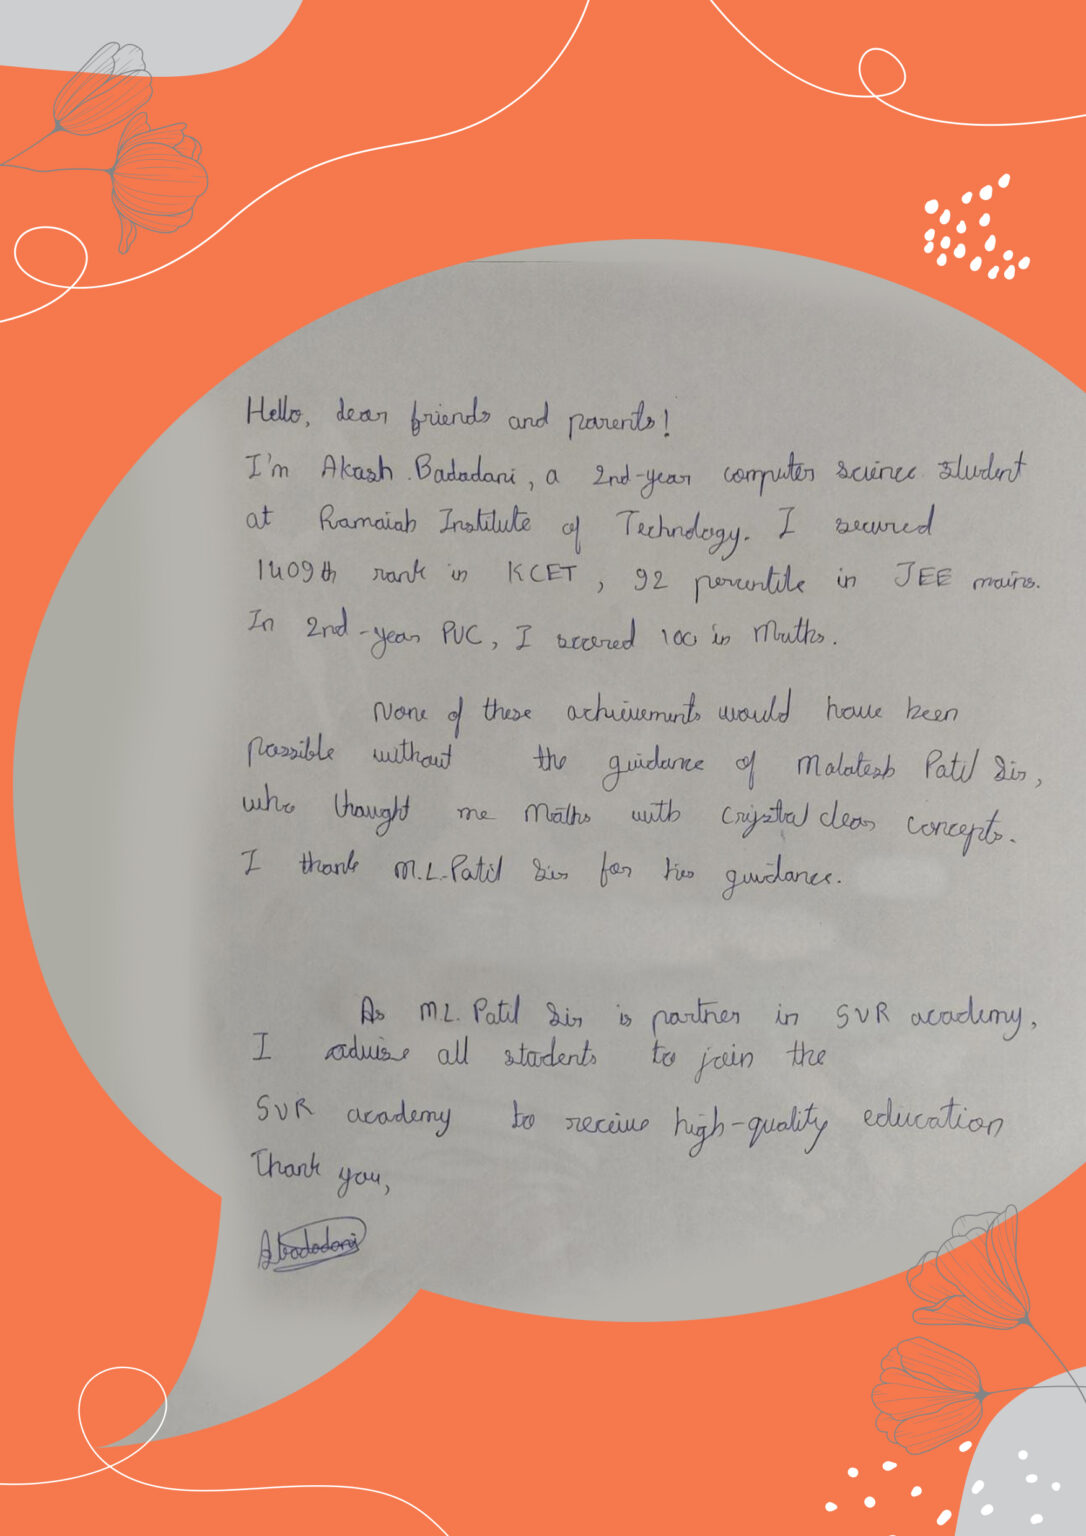 Hello, dear friends and parents!
I'm Akash .Badadani, a 2nd-year computer science student
at Ramaiah Institute of Technology. I secured
1409th rank in KCET, 92 percentile in JEE mains.
In 2nd-year PUC, I scored 100 in Maths.
None of these achievements would have been
possible without the guidance of Malatesh Patil Sir,
who thought me Maths with crystal clear concepts.
I thank M.L.Patil Sir for his guidance.
As M.L. Patil Sir is partner in SVR academy,
I advise all students to join the
SVR academy to receive high-quality education
Thank you,
ABadadani